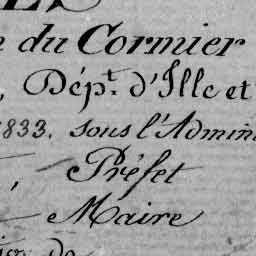 du Cormier
, Dépt. d'Ille et
1833, sous l'Admin
, Préfet
Maire
de